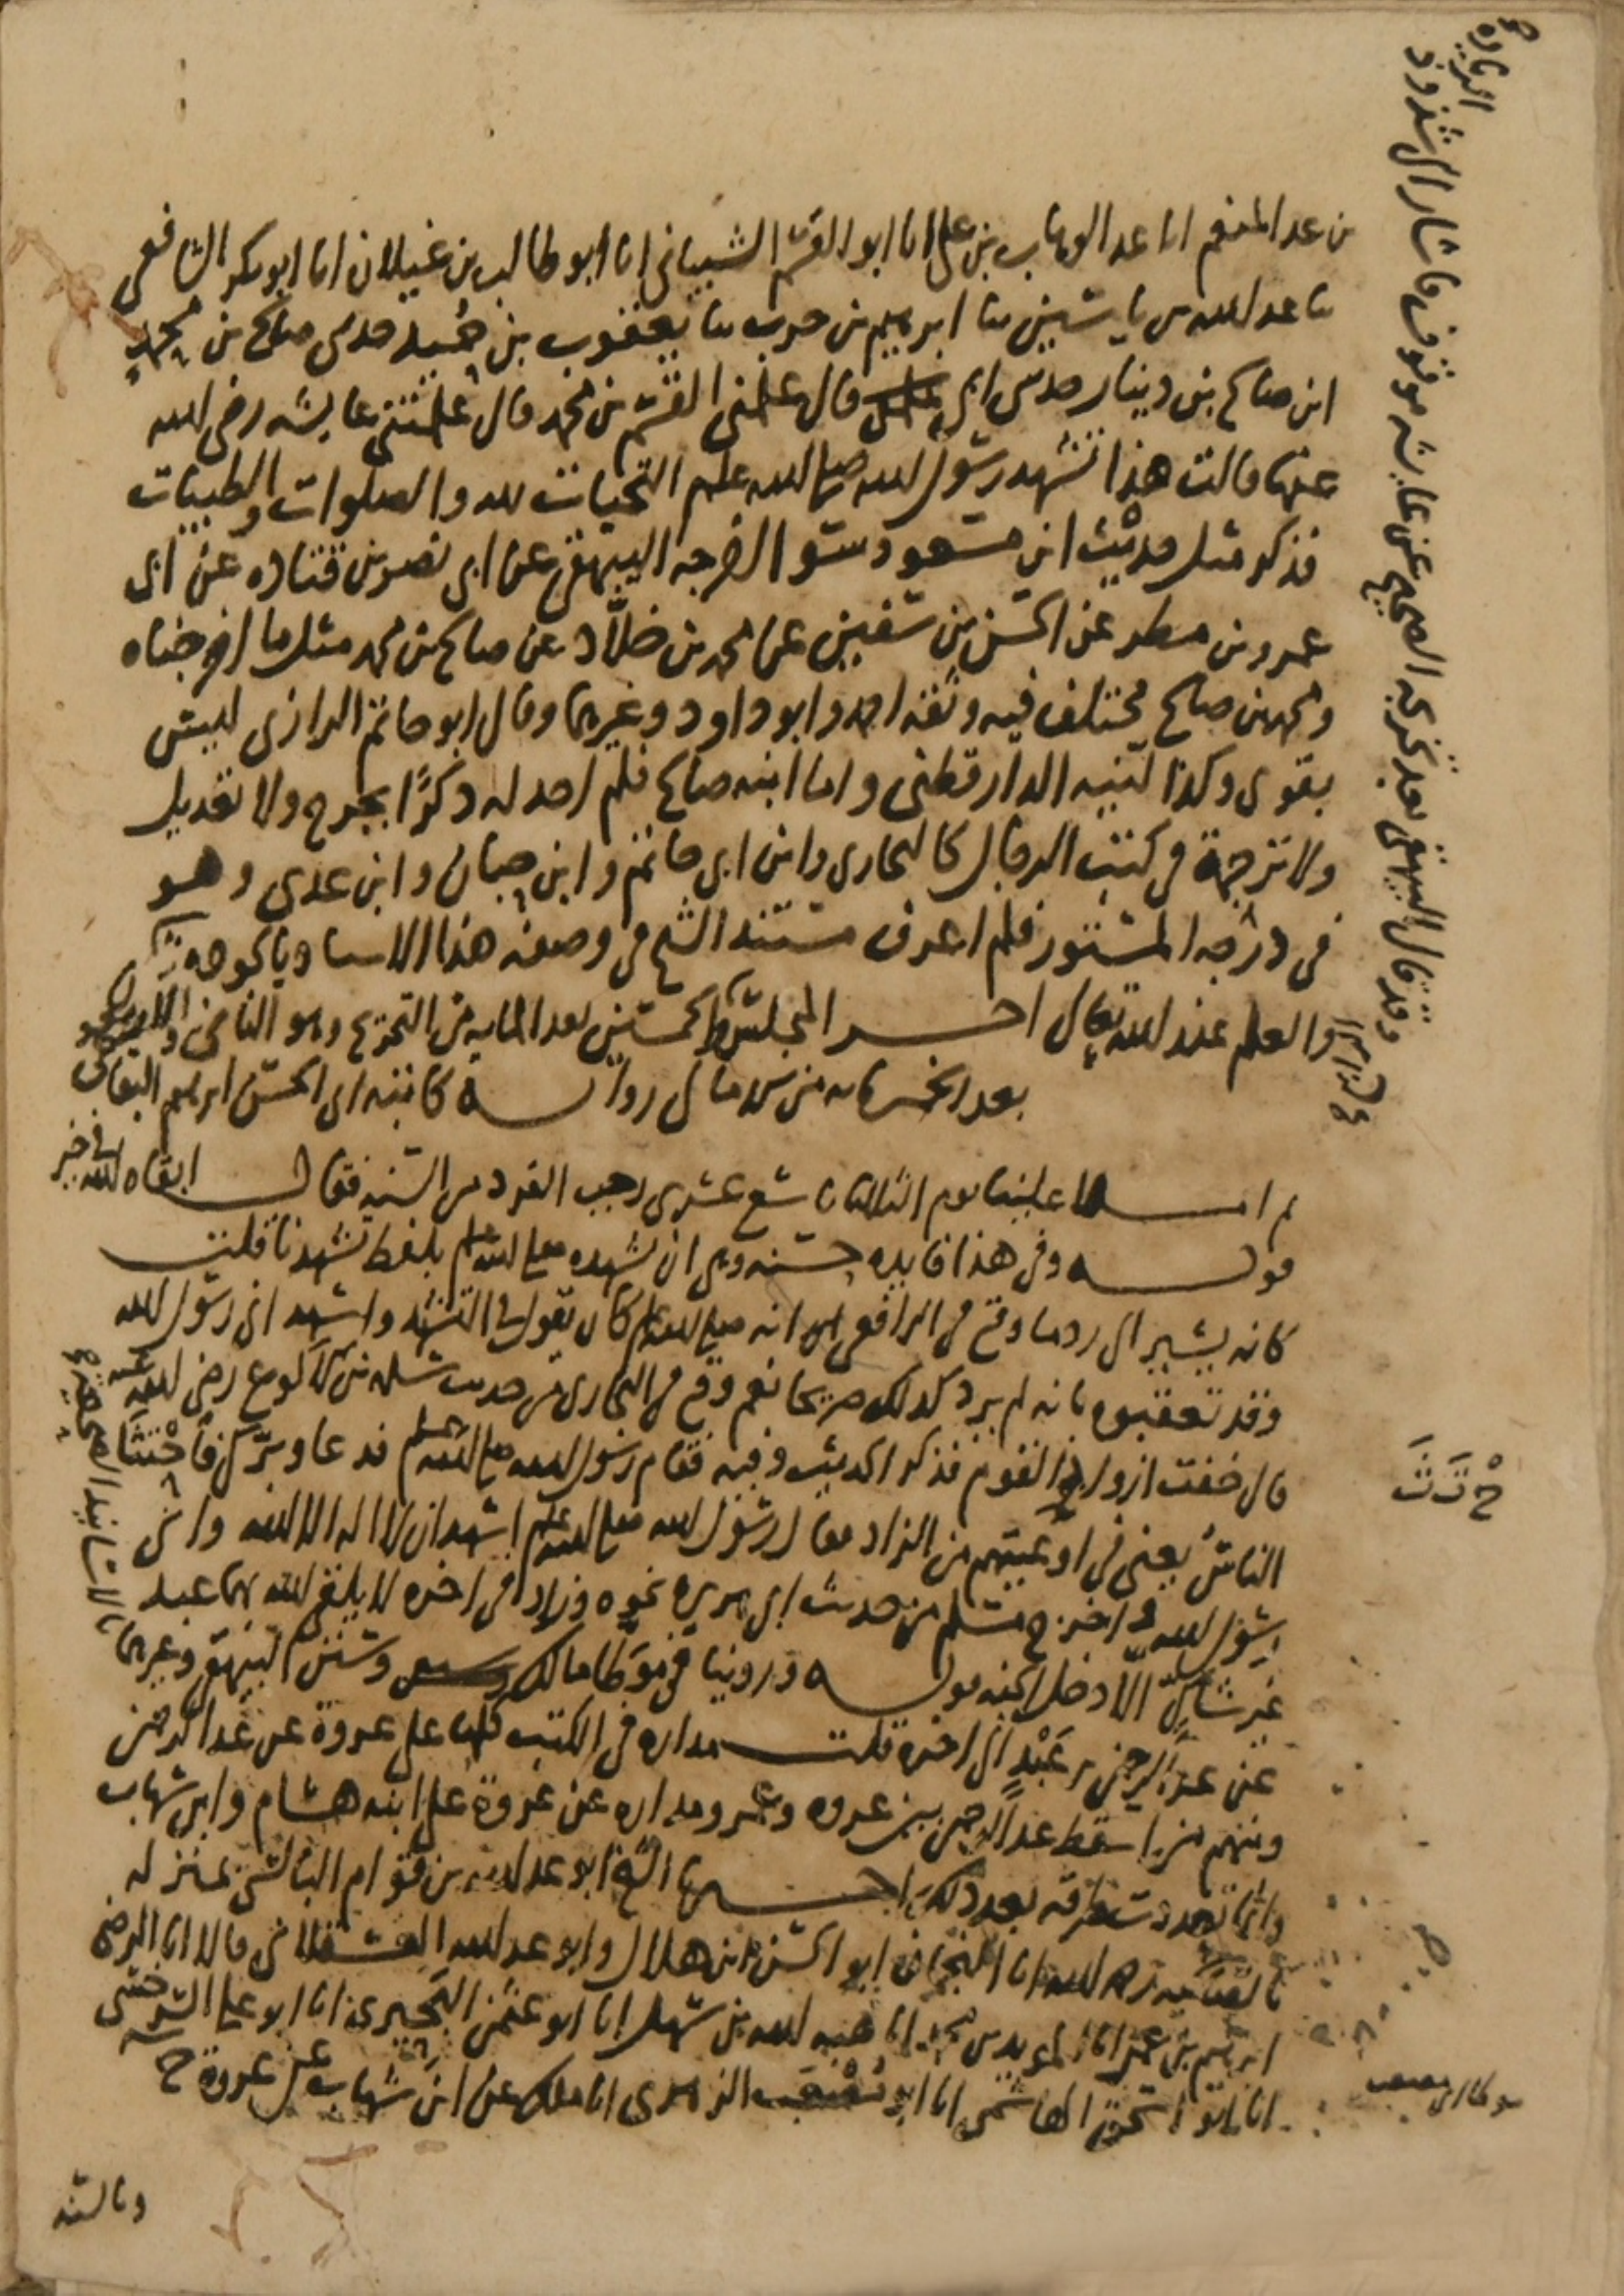 بن عبد المنعم انا عبد الوهاب بن علي انا ابو القسم الشيباني انا ابو طالب بن غيلان انا ابو بكر الشافعي
ثنا عبد الله بن ياسين ثنا ابرهيم بن حرب ثنا يعقوب بن حميد حدثني صالح بن محمد
ابن صالح بن دينار حدثني ابي قال علمني القسم بن محمد قال علمتني عايشه رضي الله
عنها قالت هذا تشهد رسول الله صلى الله عليه وسلم التحيات لله والصلوات والطيبات
فذكر مثل حديث ابن مسعود سوا اخرجه البيهقي عن ابي نصر بن قتاده عن ابي
عمرو بن مطر عن الحسن بن سفين عن محمد بن خلّاد عن صالح بن محمد مثل ما اخرجناه
ومحمد بن صالح مختلف فيه وثقه احمد وابو داود وغيرهما وقال ابو حاتم الرازي ليس
بقوي وكذا لينه الدارقطني واما ابنه صالح فلم اجد له ذكرًا بجرح ولا تعديل
ولا ترجمة في كتب الرجال كالبخاري وابن ابي حاتم وابن حبان وابن عدي وهو
في درجه المستور فلم اعرف مستند الشيخ في وصفه هذا الاسناد بالجوده
والعلم عند الله تعالى اخر المجلس الخمسين بعد المايه من التخريج وهو الثامن
بعد الخمسمايه من الامالي روايه كاتبه ابي الحسن ابرهيم البقاعي
ثم املا علينا يوم الثلاثا تاسع عشري رجب الفرد من السنه فقال ابقاه الله في خير
قوله وفي هذا فايده حسنه وهي ان تشهده صلى الله عليه وسلم بلفظ تشهدنا قلت
كانه يشير الى رد ما وقع في الرافعي انه صلى الله عليه وسلم كان يقول في التشهد واشهد اني رسول الله
وقد تعقبوه بانه لم يرد كذلك صريحا نعم وقع في البخاري من حديث سلمه بن الاكوع رضي الله عنه
قال خفت ازواد القوم فذكر الحديث وفيه فقام رسول الله صلى الله عليه وسلم فدعا وبرّك فاحْتثَا
الناسُ يعني في اوعيتهم من الزاد فقال رسول الله صلى الله عليه وسلم اشهد ان لا اله الا الله واني
رسول الله واخرج مسلم من حديث ابي هريره نحوه وزاد في اخره لا يلقى الله بهما عبد
غير شاكٍّ الّا دخل الجنه قوله وروينا في موطا مالك وسنن البيهقي وغيرهما بالاسانيد الصحيحه
عن عبد الرحمن بن عَبْدٍ الى اخره قلت مداره في الكتب كلها على عروة عن عبد الرحمن
ومنهم من اسقط عبد الرحمن بين عروه وعمر ومداره عن عروة على ابنه هشام وابن شهاب
وانما تعددت طرقه بعد ذلك اخبرنا الشيخ ابو عبد الله بن قوام البالسي بمنزله
بالصالحيه رحمه الله انا ابو الحسن بن هلال وابو عبد الله العسقلاني قالا انا الرضي
ابرهيم بن عمر انا المويد بن محمد انا هبه الله بن سهل انا ابو عثمن البحيري انا ابو علي السرخسي
انا ابو اسحق الهاشمي انا ابو مصعب الزهري انا ملك عن ابن شهاب عن عروة ح
وبالسند
وقد قال البيهقي بعد تخريجه الصحيح عن عايشه موقوف فاشار الى شذوذ
الزياده
حْ ثَ ثَ
موطا ابي مصعب